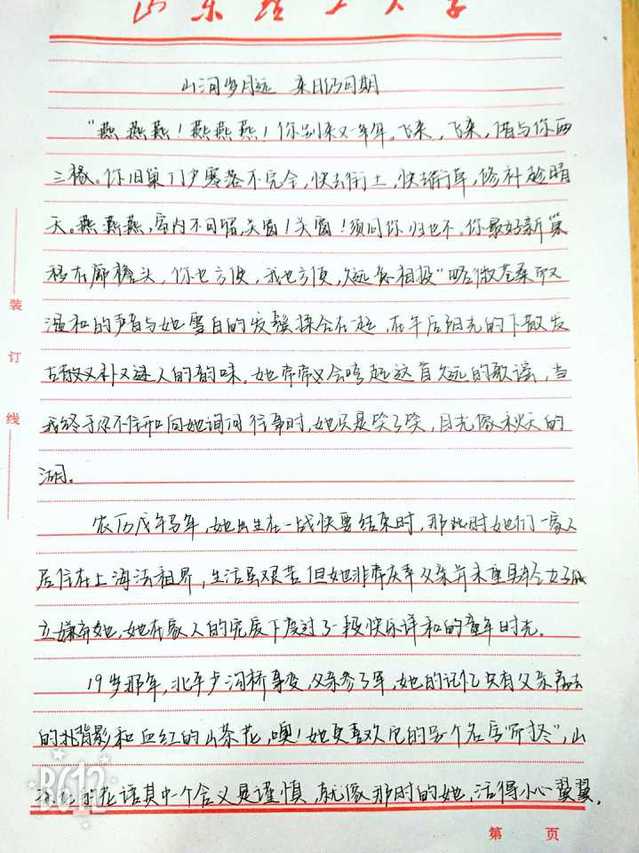 山东理工大学
山河岁月远 来日仍可期
"燕燕燕!燕燕燕!你别来又一年年。飞来,飞来,借与你两
三椽。你旧巢门户零落不完全,快去衔土,快去衔草,修补趁晴
天。燕燕燕,室内不可留,关窗!关窗!须问你归也不,你最好新巢
移在廊檐头,你也方便,我也方便,久远意相投"略微苍桑却又
温和的声音与她雪白的发鬓揉合在一起,在午后阳光的下散发
古散又朴又迷人的韵味。她常常又会唱起这首久远的歌谣,当
我终于忍不住和向她询问往事时,她只是笑了笑,目光像秋天的
湖。
农历戊午马年,她出生在一战快要结束时,那此时她们一家人
居住在上海法租界,生活虽艰苦但她非常庆幸父亲并未重男轻女
嫌弃她,她在家人的宠度下度过了一段快乐详和的童年时光。
19岁那年,北平卢沟桥事变,父亲参了军,她的记忆只有父亲离去
的背影和血红的山茶花,噢!她更喜欢它的另个名字"断头",山
茶花的花语其中一个含义是谨慎,就像那时的她,活得小心翼翼,
装
订
线
B612
第 页